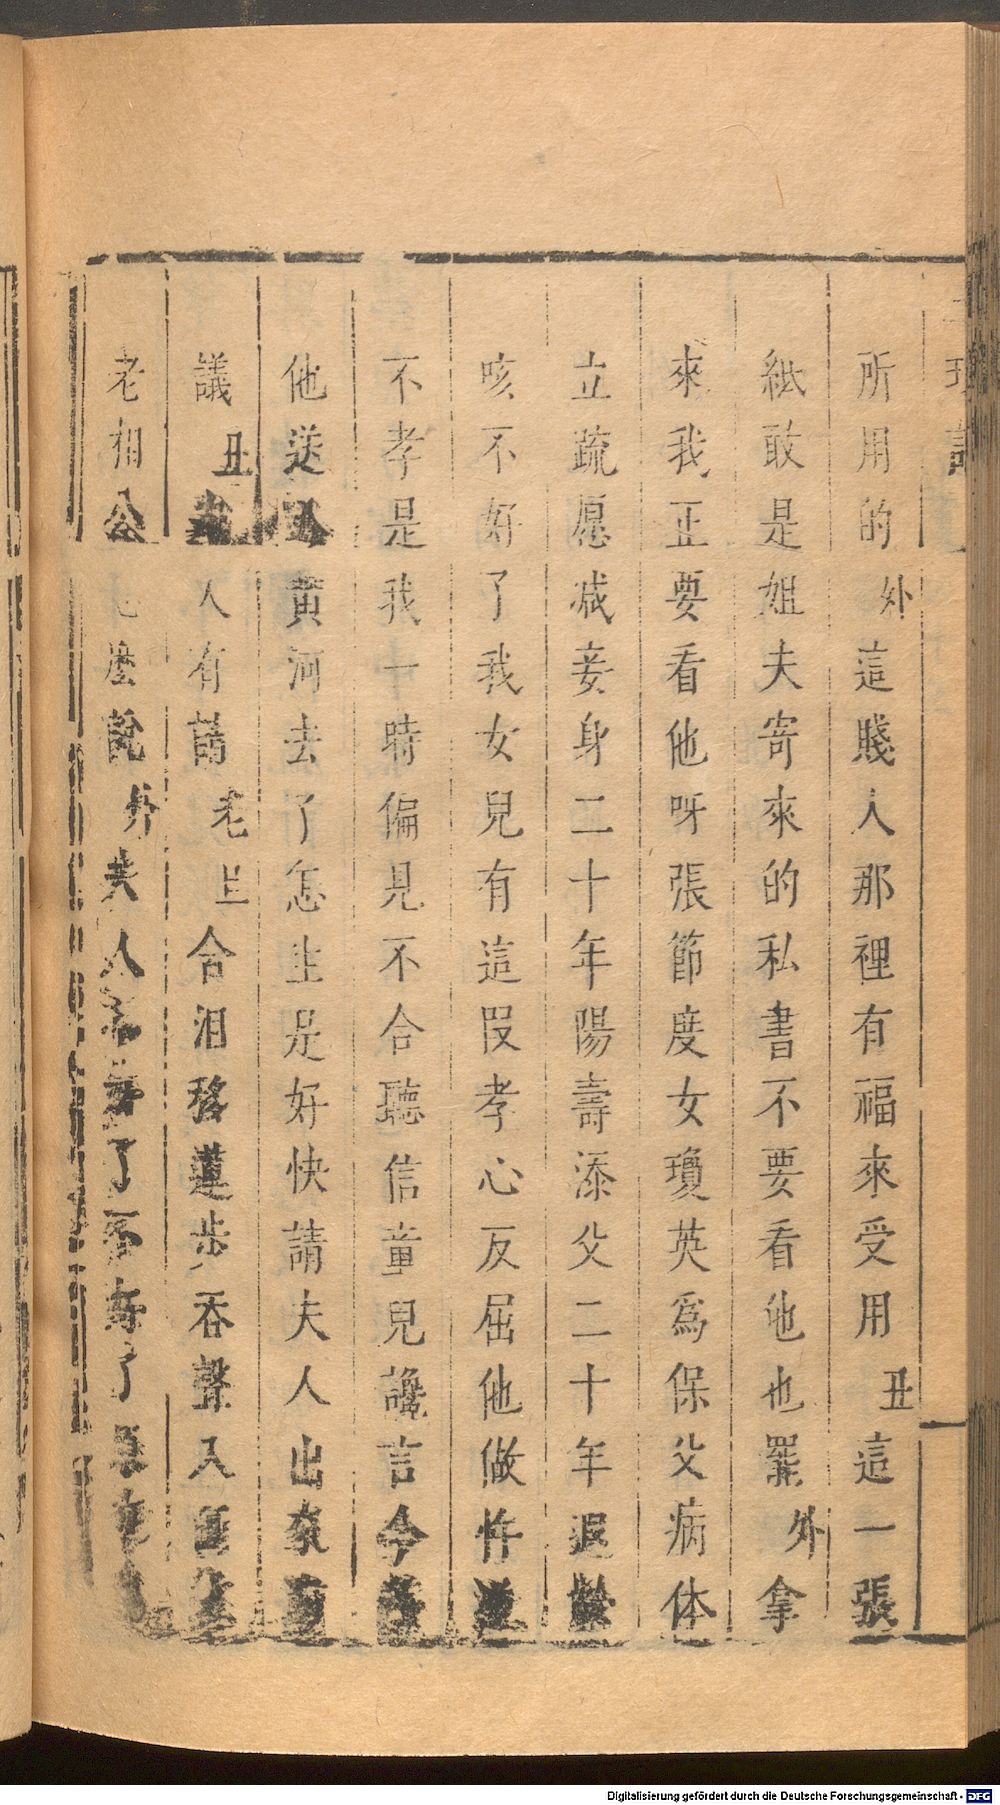 所用的外這賤人那裡有福來受用丑這一張
紙敢是姐夫寄來的私書不要看他也罷外拿
來我正要看他呀張節度女瓊英為保父病体
立疏愿减妾身二十年陽壽添父二十年退齡
咳不好了我女兒有這叚孝心反屈他做忤逆
不孝是我一時偏見不合聽信童兒讒言今
他送入黄河去了怎生是好快請夫人出來商
議丑人有請老上含泪移蓮步吞聲入
老相公麽說外夫人不好了不好了
Digitalisierung gefördert durch die Deutsche Forschungsgemeinschaft - DFG